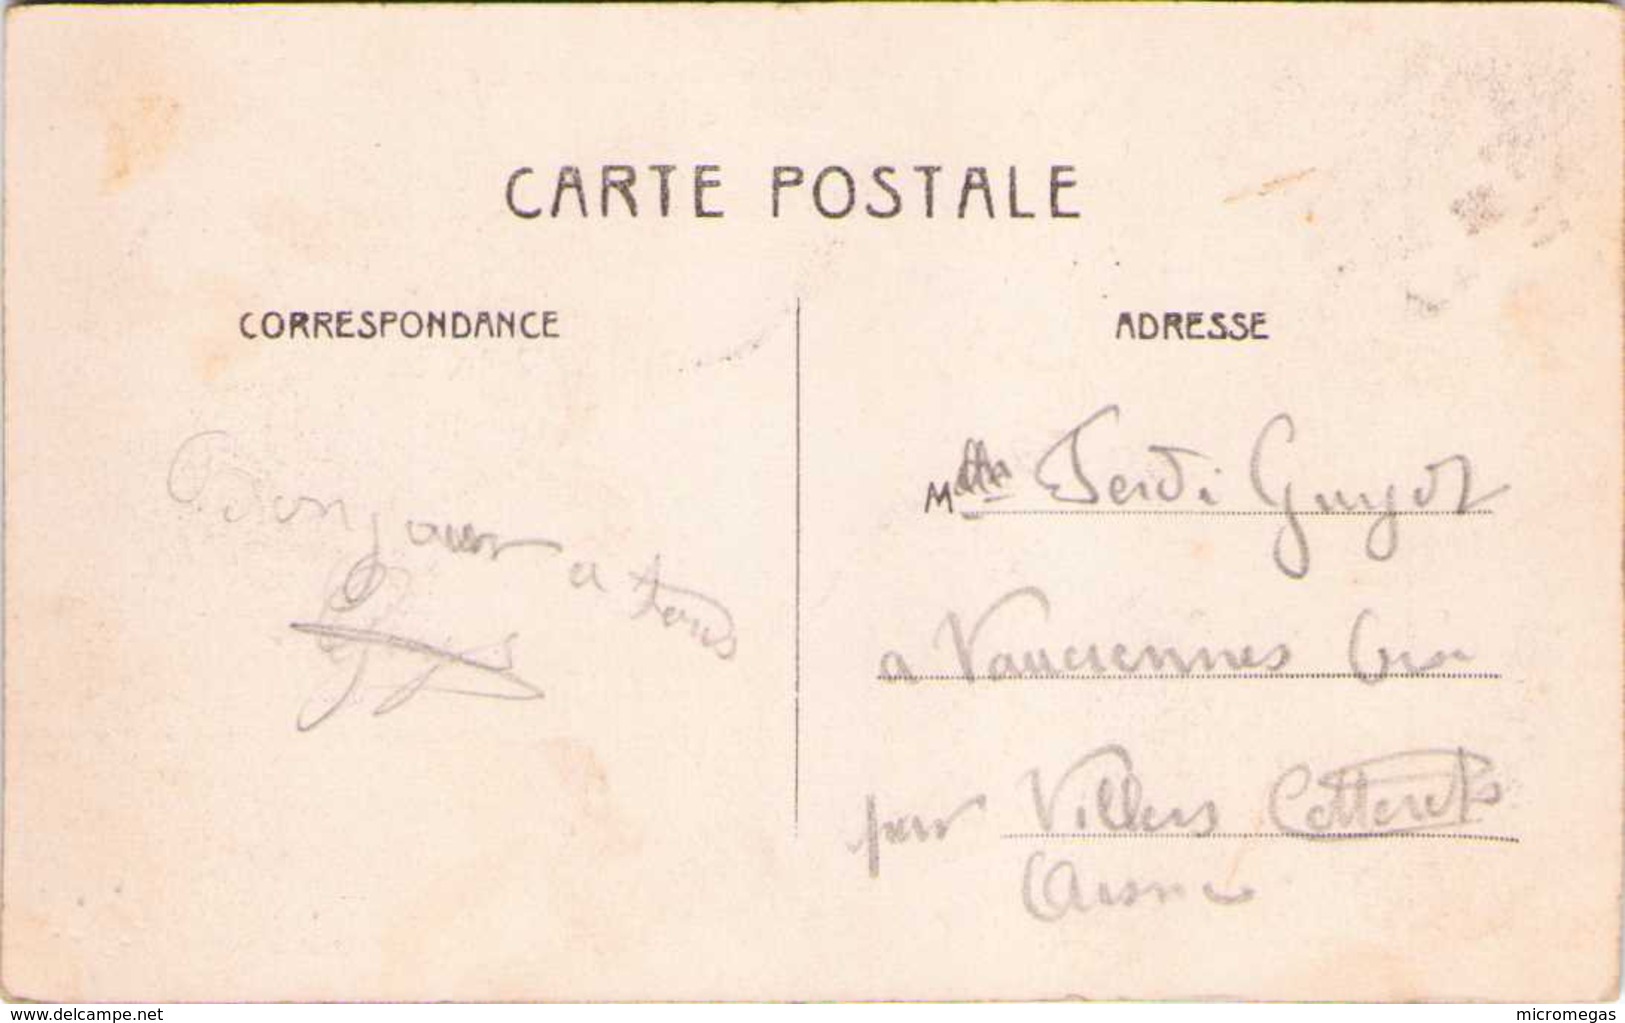 CARTE POSTALE
CORRESPONDANCE
Bonjour a tous
ADRESSE
Ferdi Guyot
a Vauciennes Oise
par Villers Cotterets
Aisne
www.delcampe.net
micromegas